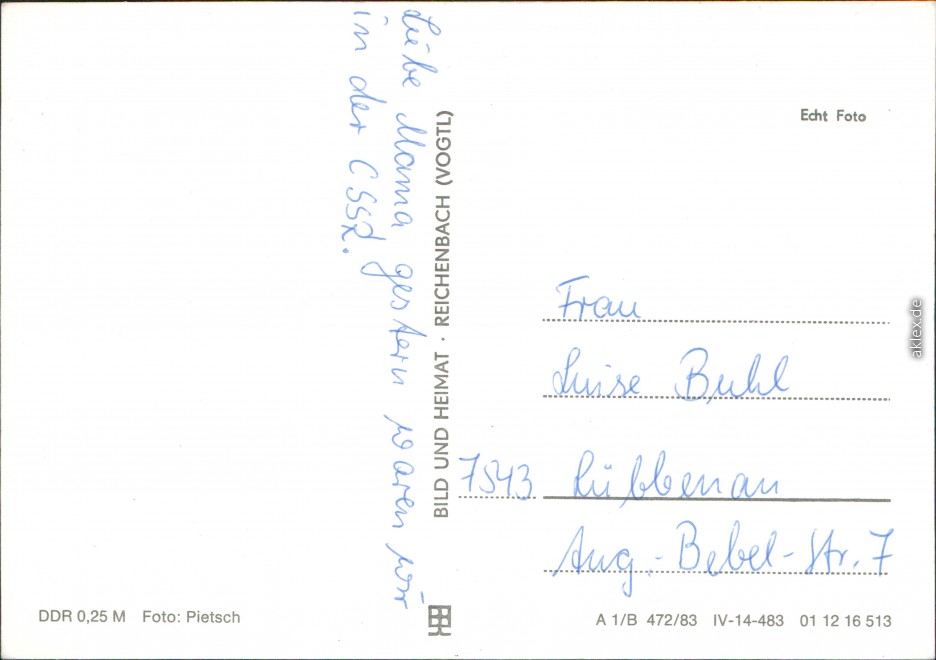 Liebe Mama gestern waren wir
in der CSSR.
BILD UND HEIMAT · REICHENBACH (VOGTL)
Echt Foto
Frau
Luise Buhl
7543 Lübbenau
Aug.-Bebel-Str. 7
DDR 0,25 M Foto: Pietsch
A 1/B 472/83 IV-14-483 01 12 16 513
aklex.de